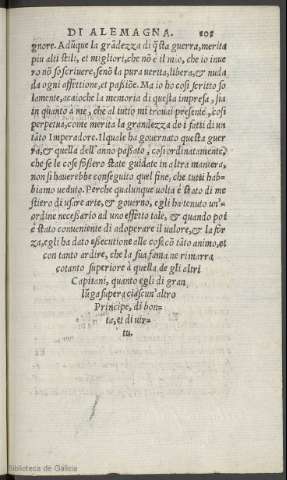 DI ALEMAGNA. 101
gnore. Adũque la grãdezza di q̃sta guerra, merita
piu alti stili, et migliori, che nõ è il mio, che io inue
ro nõ so scriuere, senõ la pura uerità, libera, & nuda
da ogni affettione, et passiõe. Ma io ho cosi scritto so
lamente, acaioche la memoria di questa impresa, sia
in quanto à me, che al tutto mi trouai presente, cosi
perpetua, come merita la grandezza de i fatti di un
tãto Imperadore. Il quale ha gouernato questa guer
ra, & quella dell'anno passato, cosi ordinatamente,
che se le cose fossero state guidate in altra maniera,
non si hauerebbe conseguito quel fine, che tutti hab-
biamo ueduto. Perche qualunque uolta è stato di me
stiero di usare arte, & gouerno, egli ha tenuto un'-
ordine necessario ad uno effetto tale, & quando poi
è stato conueniente di adoperare il ualore, & la for
za, egli ha dato essecutione alle cose cõ tãto animo, et
con tanto ardire, che la sua fama ne rimarrà
cotanto superiore à quella de gli altri
Capitani, quanto egli di gran
lũga supera ciascun'altro
Principe, di bon-
tà, et di uir-
tù.
Biblioteca de Galicia